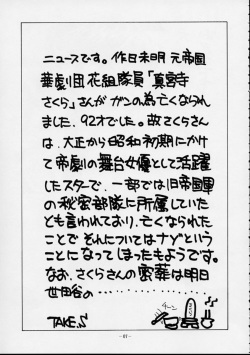 ニュースです。作日未明 元帝国
華劇団 花組隊員「真宮寺
さくら」さんがガンの為亡くなられ
ました。92才でした。故さくらさん
は、大正から昭和初期にかけ
て帝劇の舞台女優として活躍
したスターで、一部では旧帝国軍
の秘密部隊に所属していた
とも言われており、亡くなられた
ことで それについてはナゾという
ことになってしまったもようです。
なお、さくらさんの密葬は明日
世田谷の‥‥‥‥‥
チーン
TAKE.S